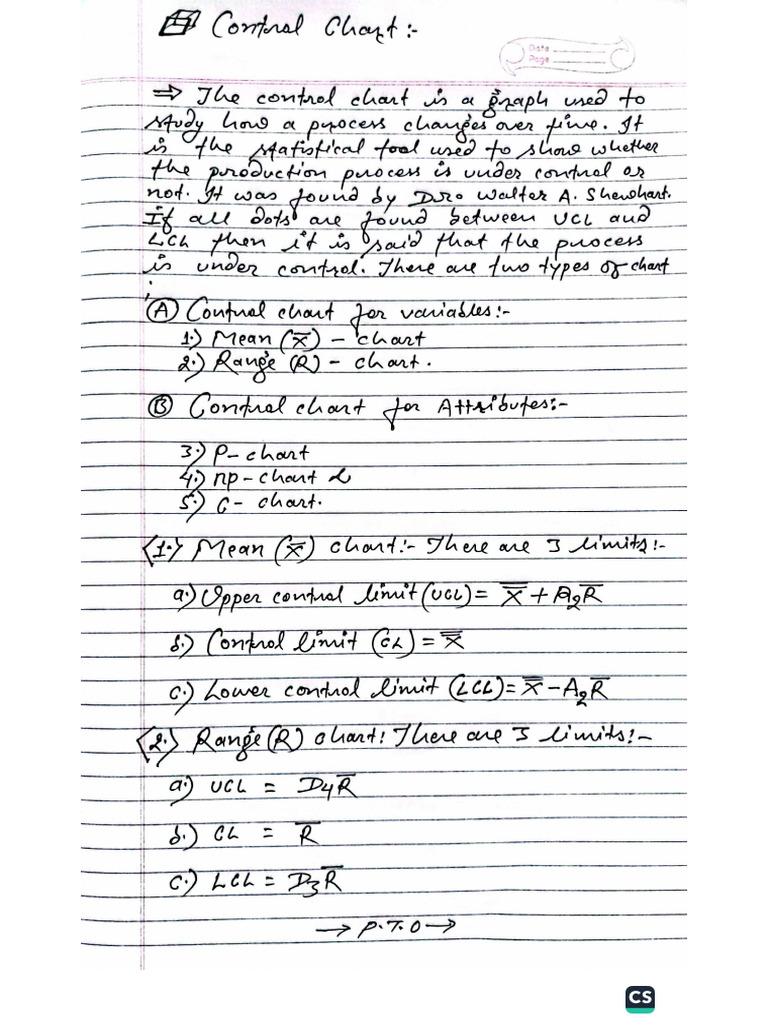 Control Chart:-
Date
Page
⇒ The control chart is a graph used to
study how a process changes over time. It
is the statistical tool used to show whether
the production process is under control or
not. It was found by Dr. Walter A. Shewhart.
If all dots are found between UCL and
LCL then it is said that the process
is under control. There are two types of chart
;
(A) Control chart for variables:-
1.) Mean (X̅) - chart
2.) Range (R) - chart.
(B) Control chart for Attributes:-
3.) P- chart
4.) np - chart &
5.) C - chart.
<1.> Mean (X̅) chart:- There are 3 limits:-
a.) Upper control limit (UCL) = X̿ + A₂R̅
b.) Control limit (CL) = X̿
c.) Lower control limit (LCL) = X̿ - A₂R̅
<2.> Range (R) chart: There are 3 limits:-
a.) UCL = D₄R̅
b.) CL = R̅
c.) LCL = D₃R̅
→ P.T.O →
CS